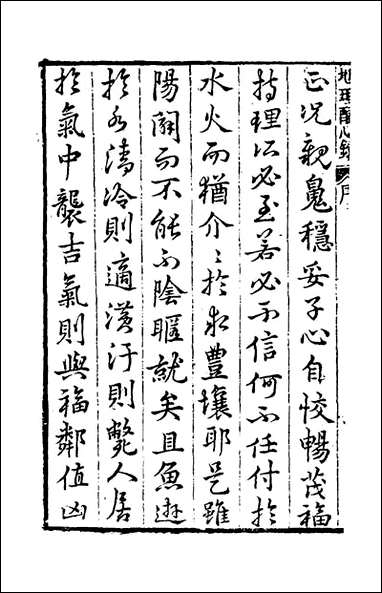 地理醒心錄 序
正况親魂穩妥子心自恔暢茂福
特理所必至若必不信何不任付於
水火而猶介〻於求豐壤耶是雖
陽闢而不能不陰暱就矣且魚遊
於水清冷則適潢汙則斃人居
於氣中襲吉氣則與福鄰值凶